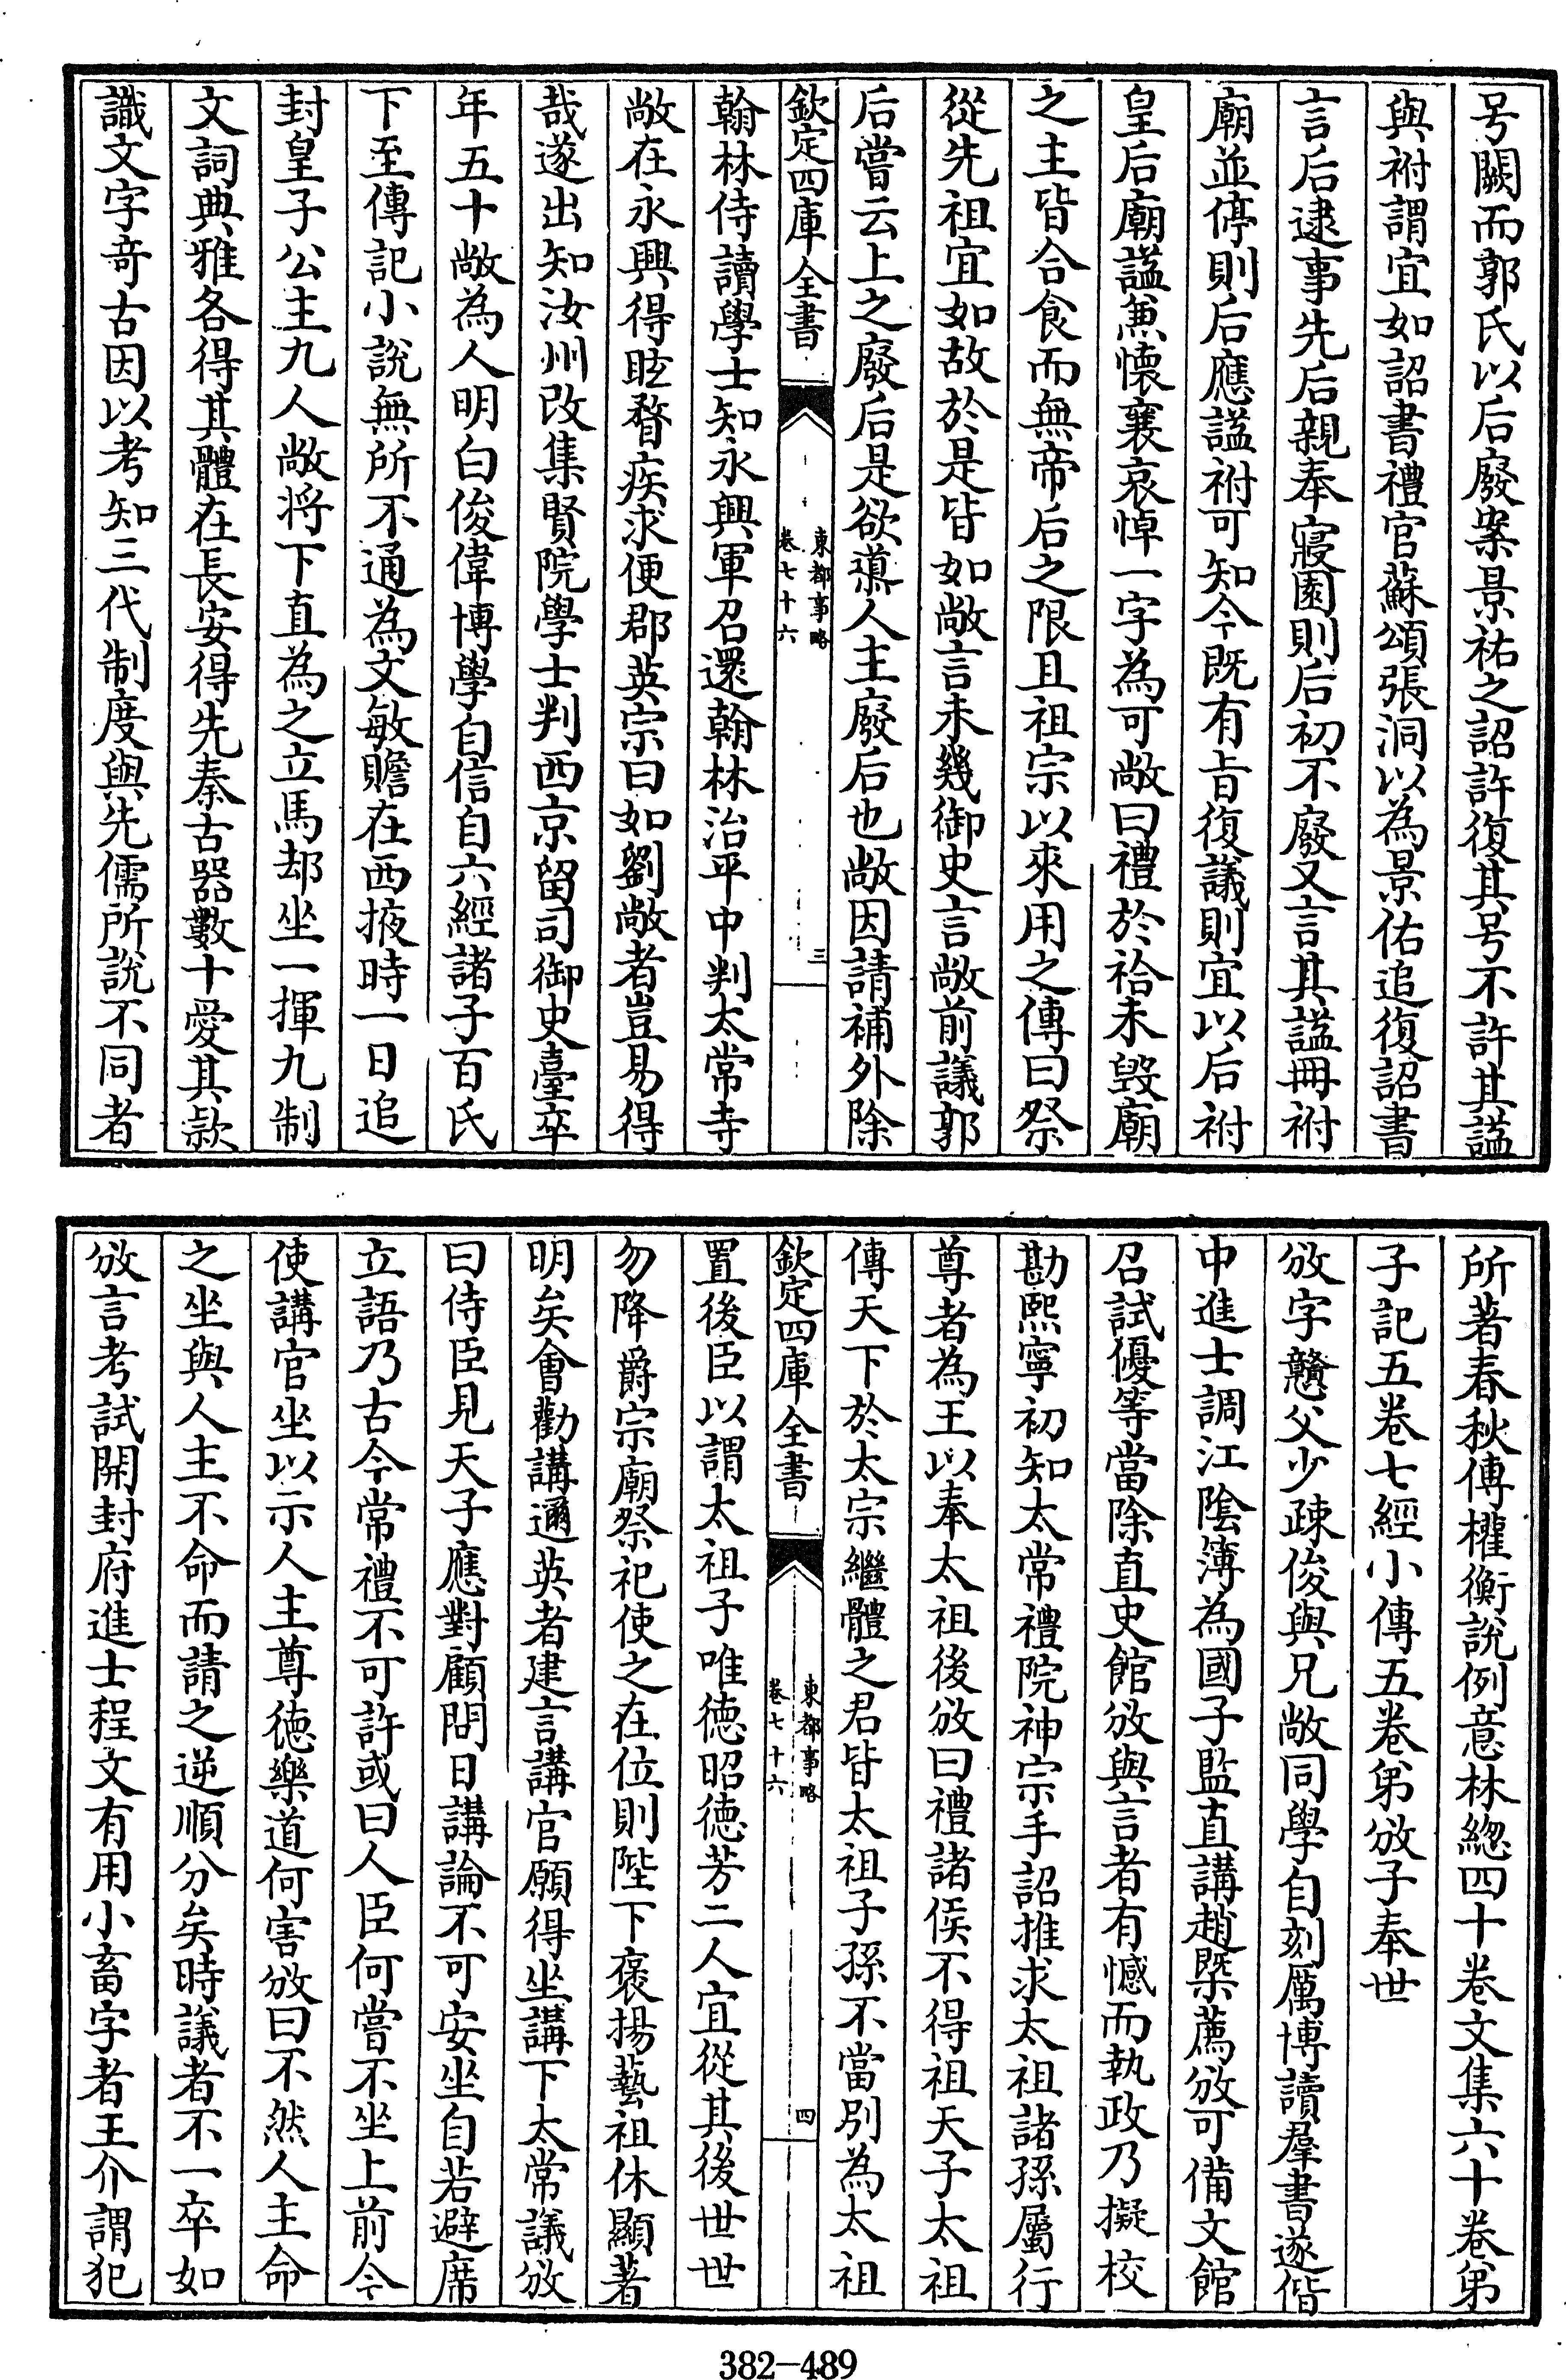 号闕而郭氏以后廢案景祐之詔許復其号不許其謚
與祔謂宜如詔書禮官蘇頌張洞以為景佑追復詔書
言后逮事先后親奉寢園則后初不廢又言其謚冊祔
廟並停則后應謚祔可知今既有旨復議則宜以后祔
皇后廟謚兼懷襄哀悼一字為可敞曰禮於祫未毀廟
之主皆合食而無帝后之限且祖宗以來用之傳曰祭
從先祖宜如故於是皆如敞言未幾御史言敞前議郭
后嘗云上之廢后是欲導人主廢后也敞因請補外除
欽定四庫全書
東都事略
卷七十六
三
翰林侍讀學士知永興軍召還翰林治平中判太常寺
敞在永興得眩瞀疾求便郡英宗曰如劉敞者豈易得
哉遂出知汝州改集賢院學士判西京留司御史臺卒
年五十敞為人明白俊偉博學自信自六經諸子百氏
下至傳記小說無所不通為文敏贍在西掖時一日追
封皇子公主九人敞將下直為之立馬却坐一揮九制
文詞典雅各得其體在長安得先秦古器數十愛其款
識文字奇古因以考知三代制度與先儒所說不同者
所著春秋傳權衡說例意林總四十卷文集六十卷弟
子記五卷七經小傳五卷弟攽子奉世
攽字戇父少疎俊與兄敞同學自刻厲博讀羣書遂偕
中進士調江陰簿為國子監直講趙槩薦攽可備文館
召試優等當除直史館攽與言者有憾而執政乃擬校
勘熙寧初知太常禮院神宗手詔推求太祖諸孫屬行
尊者為王以奉太祖後攽曰禮諸侯不得祖天子太祖
傳天下於太宗繼體之君皆太祖子孫不當別為太祖
欽定四庫全書
東都事略
卷七十六
四
置後臣以謂太祖子唯德昭德芳二人宜從其後世世
勿降爵宗廟祭祀使之在位則陛下褒揚藝祖休顯著
明矣會勸講邇英者建言講官願得坐講下太常議攽
曰侍臣見天子應對顧問日講論不可安坐自若避席
立語乃古今常禮不可許或曰人臣何嘗不坐上前今
使講官坐以示人主尊德樂道何害攽曰不然人主命
之坐與人主不命而請之逆順分矣時議者不一卒如
攽言考試開封府進士程文有用小畜字者王介謂犯
382-489